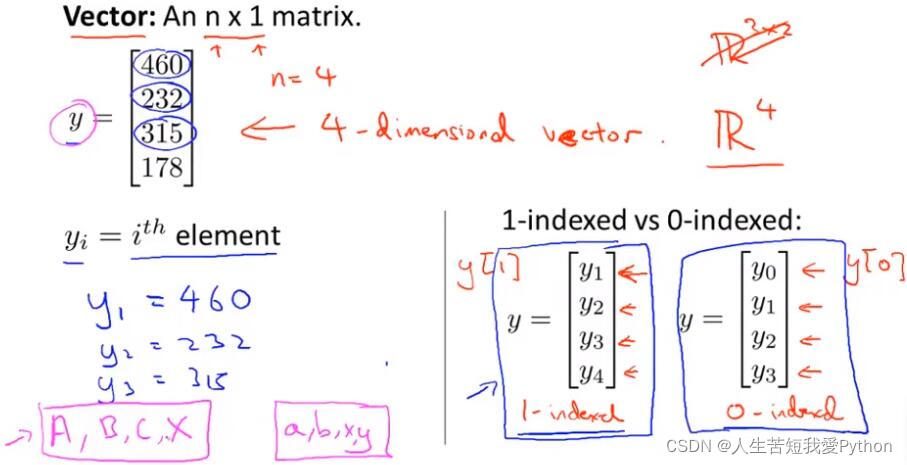 Vector: An n x 1 matrix.
y = [460 232 315 178]
n = 4
← 4-dimensional vector.
ℝ³ˣ²
ℝ⁴
yᵢ = iᵗʰ element
y₁ = 460
y₂ = 232
y₃ = 315
A, B, C, X
a, b, x, y
1-indexed vs 0-indexed:
y[1]
y = [y₁ y₂ y₃ y₄]
1-indexed
y[0]
y = [y₀ y₁ y₂ y₃]
0-indexed
CSDN @人生苦短我愛Python